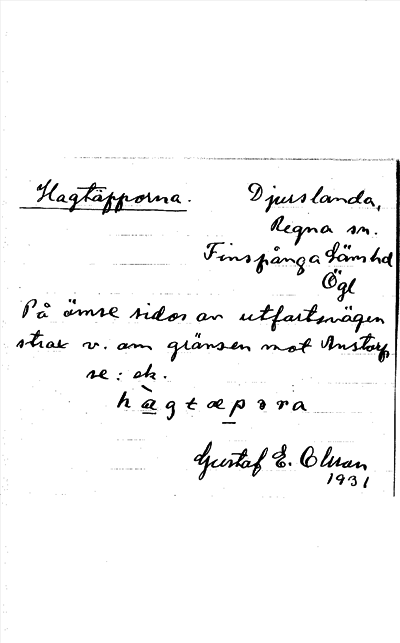 Hagtäpporna. Djurslanda,
Regna sn.
Finspånga läns hd
Ögl
På ömse sidor av utfartsvägen
strax v. om gränsen mot
se: ek.
hàgtæpəra
Gustaf E. Olsson
1931